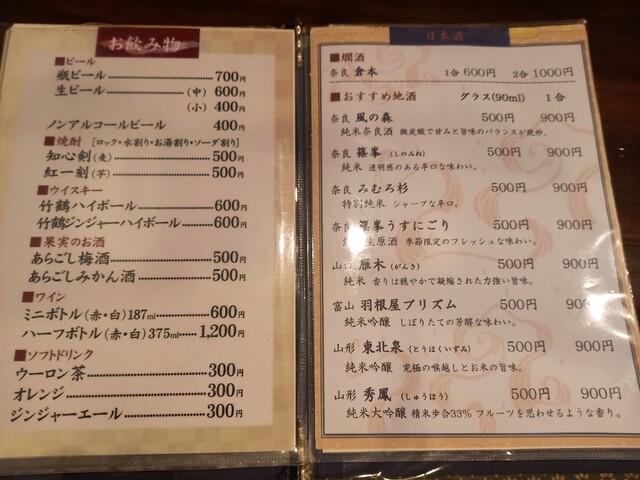 お飲み物
■ビール
瓶ビール 700円
生ビール (中) 600円
(小) 400円
ノンアルコールビール 400円
■焼酎 [ロック・水割り・お湯割り・ソーダ割り]
知心剣(麦) 500円
紅一刻(芋) 500円
■ウイスキー
竹鶴ハイボール 600円
竹鶴ジンジャーハイボール 600円
■果実のお酒
あらごし梅酒 500円
あらごしみかん酒 500円
■ワイン
ミニボトル(赤・白)187ml 600円
ハーフボトル(赤・白)375ml 1,200円
■ソフトドリンク
ウーロン茶 300円
オレンジ 300円
ジンジャーエール 300円
日本酒
■燗酒
奈良 倉本 1合 600円 2合 1000円
■おすすめ地酒 グラス(90ml) 1合
奈良 風の森 500円 900円
純米奈良酒 微炭酸で甘みと旨味のバランスが絶妙。
奈良 篠峯 (しのみね) 500円 900円
純米 透明感のある辛口な味わい。
奈良 みむろ杉 500円 900円
特別純米 シャープな辛口。
奈良 篠峯うすにごり 500円 900円
生原酒 季節限定のフレッシュな味わい。
山口 雁木 (がんぎ) 500円 900円
純米 香りは穏やかで凝縮された力強い旨味。
富山 羽根屋プリズム 500円 900円
純米吟醸 しぼりたての芳醇な味わい。
山形 東北泉 (とうほくいずみ) 500円 900円
純米吟醸 究極の喉越しとお米の旨味。
山形 秀鳳 (しゅうほう) 500円 900円
純米大吟醸 精米歩合33% フルーツを思わせるような香り。